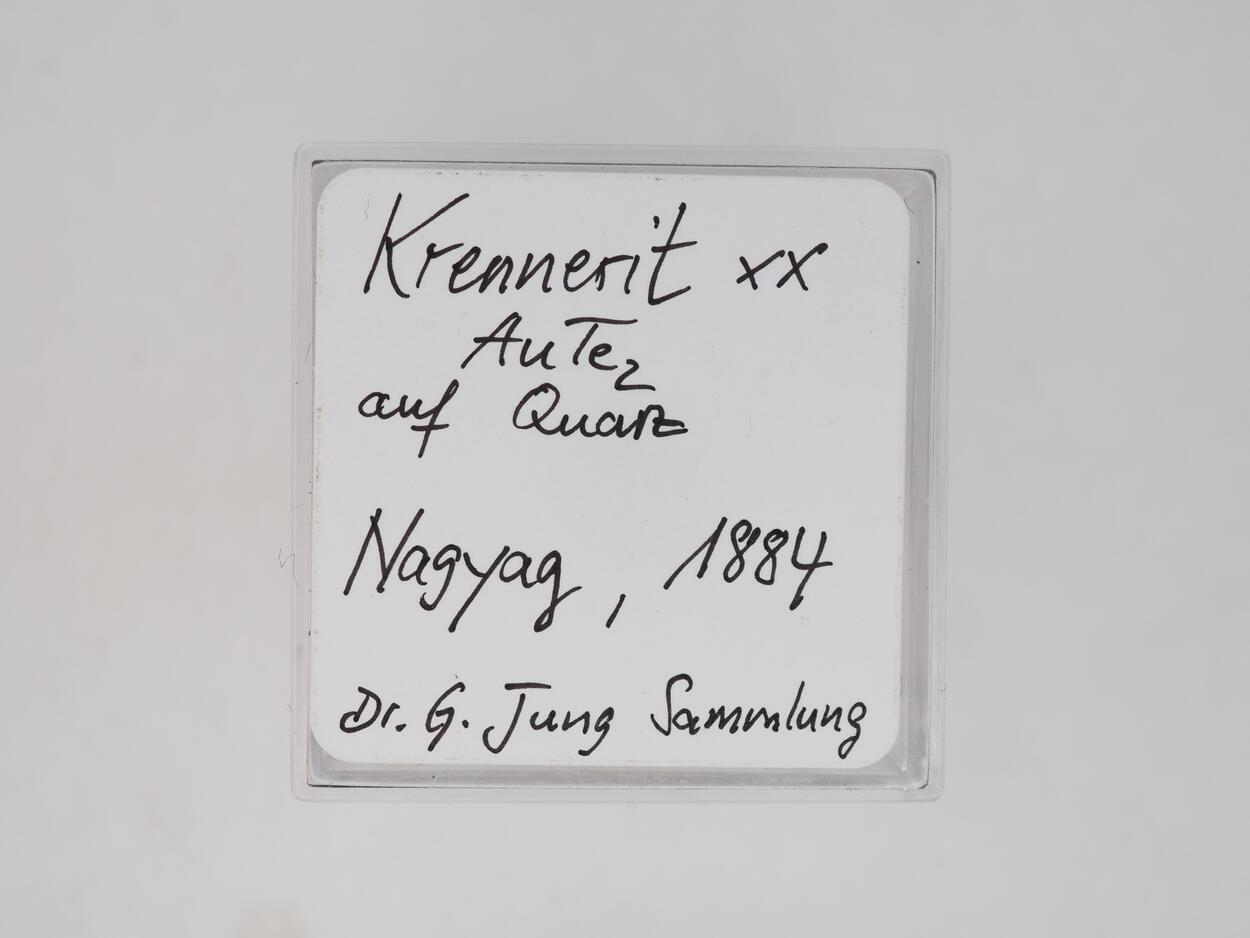 Krennerit xx
AuTe₂
auf Quarz
Nagyag, 1884
Dr. G. Jung Sammlung